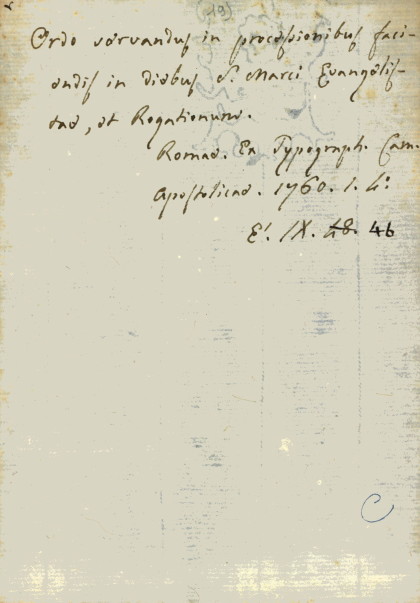 (19)
Ordo servandus in processionibus faci-
endis in diebus S. Marci Evangelis-
tae, et Rogationum.
Romae. Ex Typograph. Cam.
Apostolicae. 1760. 1. 4:
E!. IX. 48. 46
C